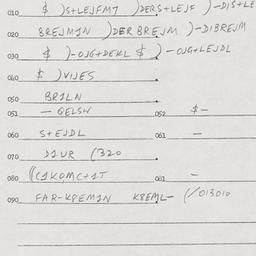 010 $ )S+LEJFM7 )DERS+LEJF )-DIS+LE
020 BREJM1N )DERBREJM )-DIBREJM
030 $ )-OJG+DEKL $ )-OJG+LEJDL
040 $ )VIJES
050 BR1LN
051 - GELSW 052 $-
060 S+EJDL 061 -
070 D1UR (320
080 ((1KOMC+1T 081 -
090 FAR-KREM1N KREML- (/013010